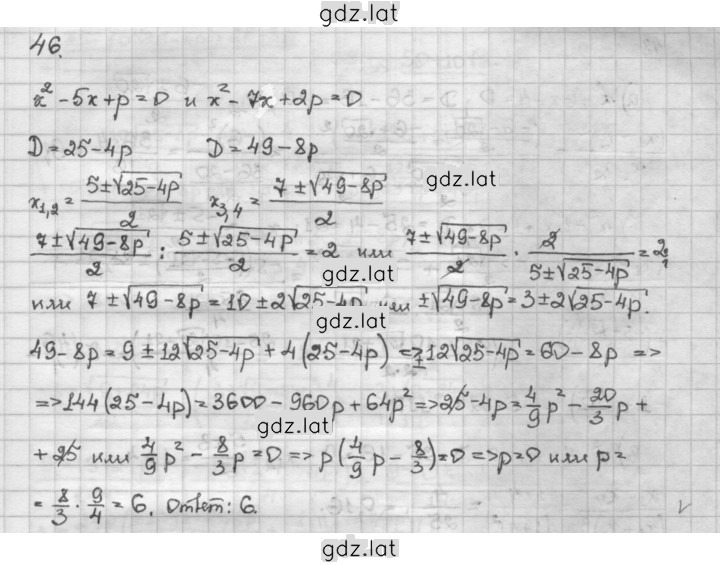 gdz.lat
46.
x² - 5x + p = 0 и x² - 7x + 2p = 0
D = 25 - 4p D = 49 - 8p
gdz.lat
x₁,₂ = (5 ± √(25 - 4p))/2 x₃,₄ = (7 ± √(49 - 8p))/2
(7 ± √(49 - 8p))/2 : (5 ± √(25 - 4p))/2 = 2 или (7 ± √(49 - 8p))/2 · 2/(5 ± √(25 - 4p)) = 2/1
gdz.lat
или 7 ± √(49 - 8p) = 10 ± 2√(25 - 4p) или ± √(49 - 8p) = 3 ± 2√(25 - 4p).
gdz.lat
49 - 8p = 9 ± 12√(25 - 4p) + 4(25 - 4p) => ∓12√(25 - 4p) = 60 - 8p =>
=> 144(25 - 4p) = 3600 - 960p + 64p² => 25 - 4p = 4/9 p² - 20/3 p +
gdz.lat
+ 25 или 4/9 p² - 8/3 p = 0 => p(4/9 p - 8/3) = 0 => p = 0 или p =
= 8/3 · 9/4 = 6. Ответ: 6.
gdz.lat